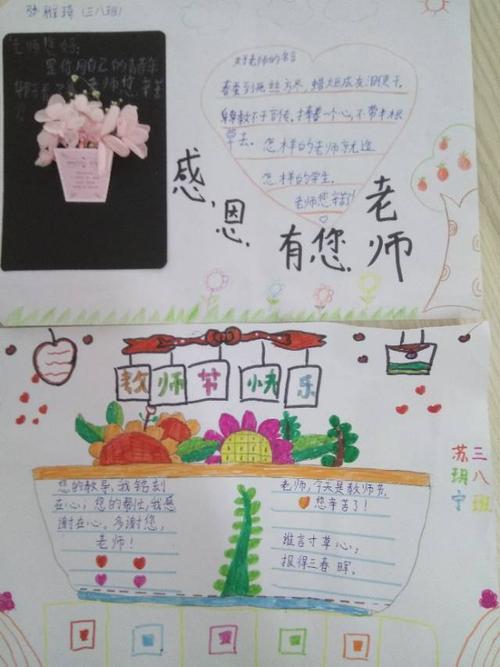 (三八班)
老师您好:
是你用自己的青春年
对老师的名言
春蚕到死丝方尽, 蜡炬成灰泪始干。
捧着一个心, 不带半根
草去。怎样的老师就造
怎样的学生。
老师您辛苦了!
感恩有您老师
教师节快乐
您的教导, 我铭刻
在心; 您的帮助, 我感
谢在心。多谢您,
老师!
老师, 今天是教师节,
您辛苦了!
谁言寸草心,
报得三春晖。
三八班
苏玥宁